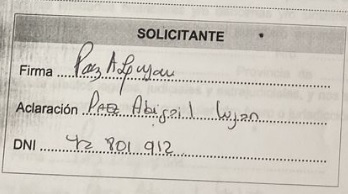 SOLICITANTE
Firma Paez A Lujan
Aclaración Paez Abigail Lujan
DNI 42 801 912